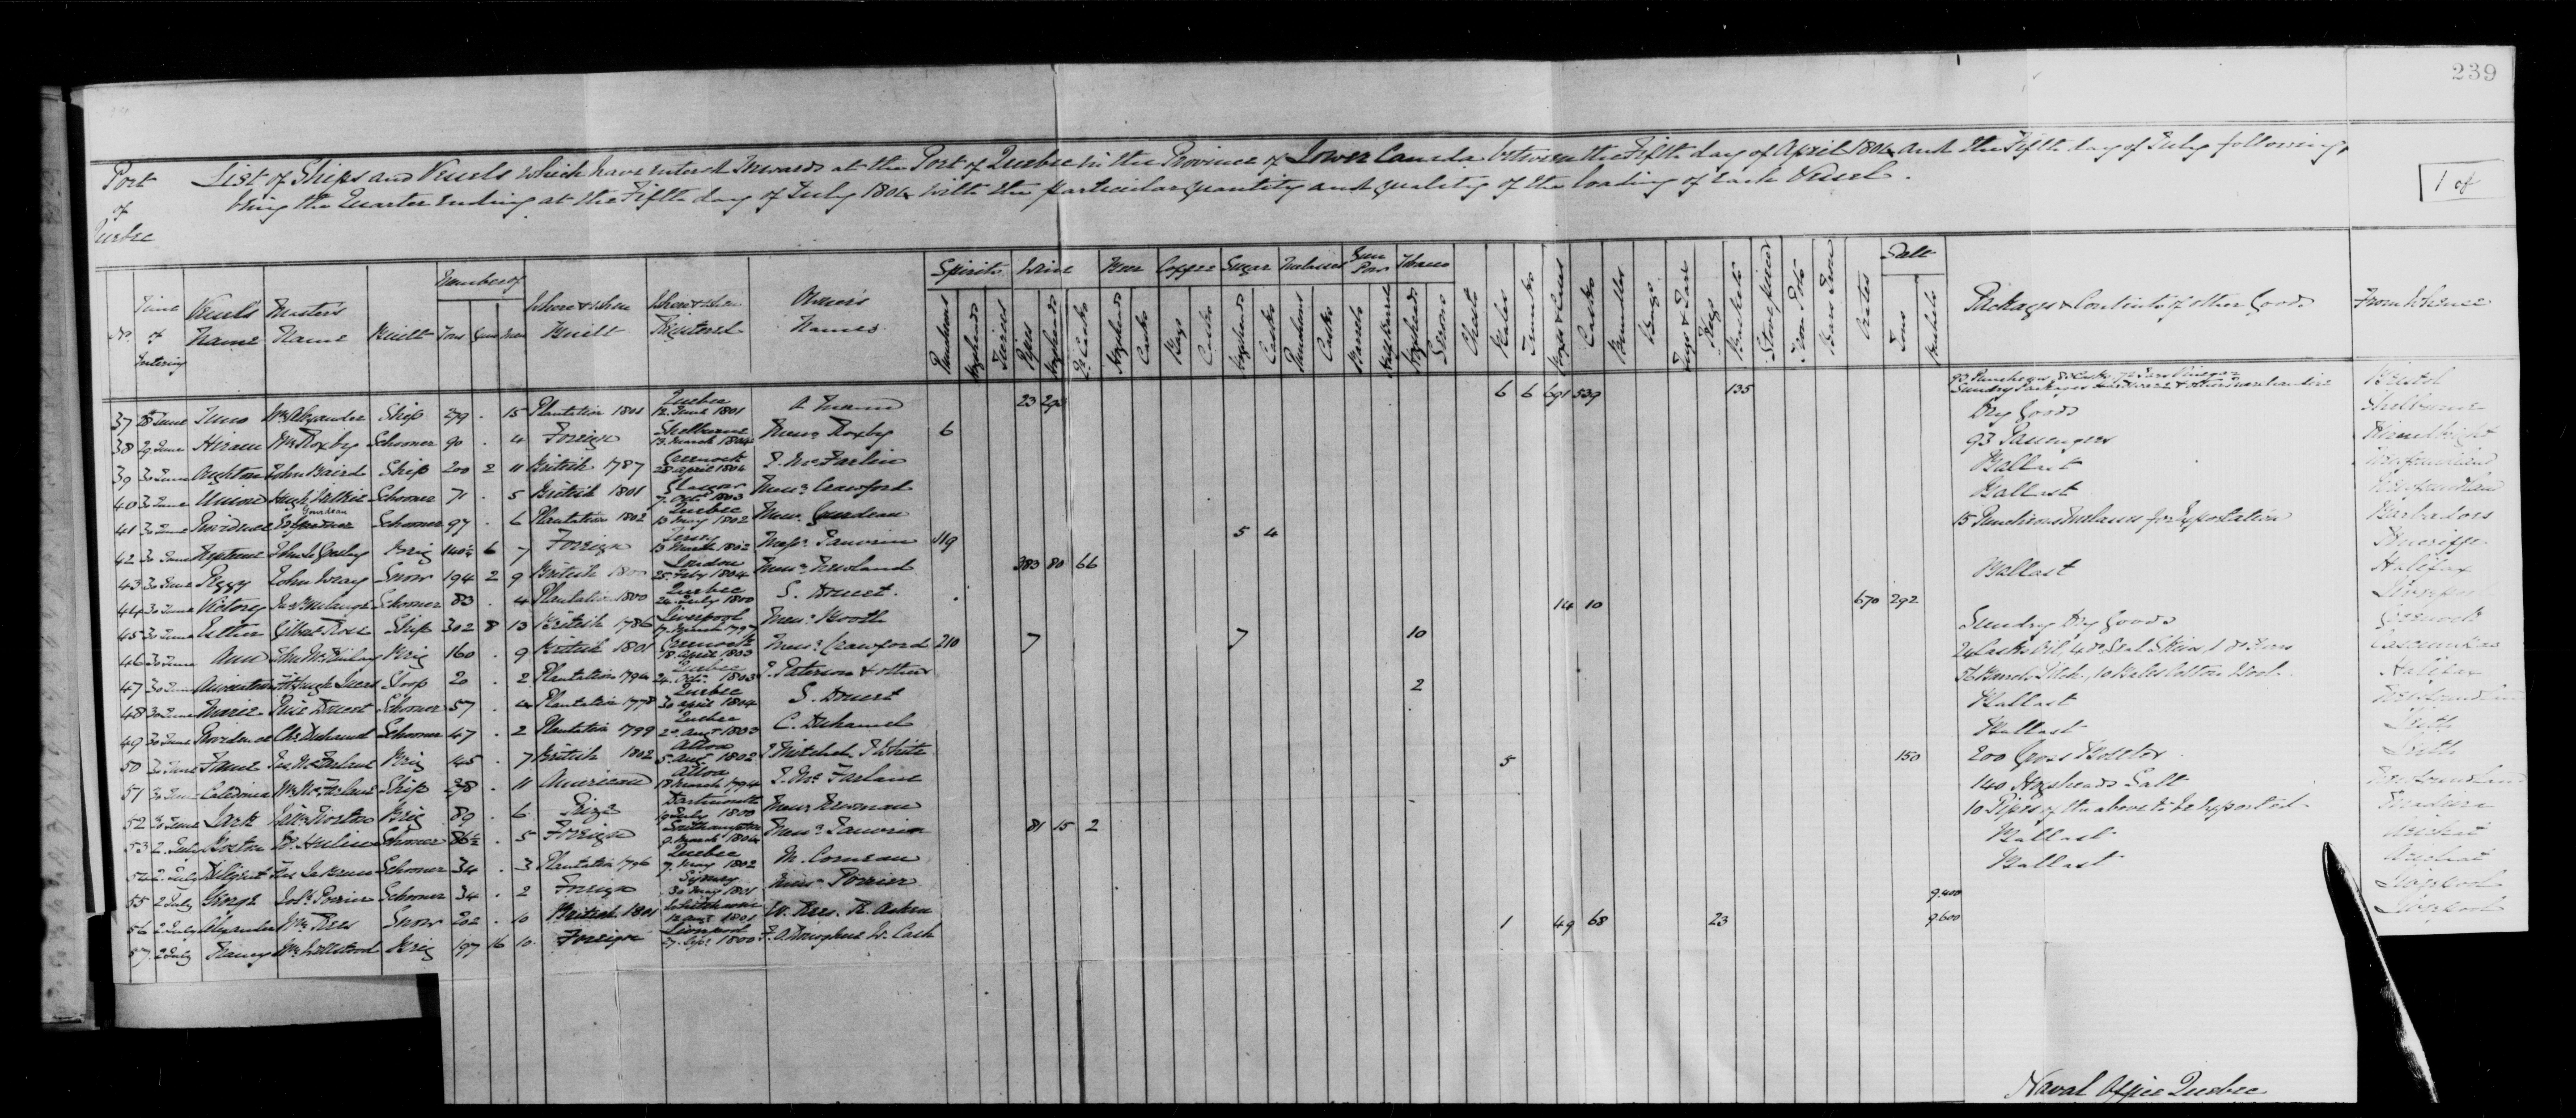 239
Port of Quebec
List of Ships and Vessels which have entered Inwards at the Port of Quebec in the Province of Lower Canada between the Fifth day of April 1804 and the Fifth day of July following,
being the Quarter ending at the Fifth day of July 1804 with the particular quantity and quality of the loading of each Vessel.
1 of
No. Time of Entering Vessel's Name Master's Name Built Number of Tons Guns Men Where & When Built Where & When Registered Owner's Names
Spirits Wine Beer Coffee Sugar Molasses Gun Powr Tobacco Salt
Puncheons Hogsheads Tierces Pipes Hogsheads Qr Casks Hogsheads Casks Bags Casks Hogsheads Casks Puncheons Casks Barrels Half Barrels Hogsheads Serons Chests Bales Trunks Boxes & Cases Casks Bundles Bags Jugs & Jars Kegs Baskets Stove pieces Iron Pots Bars Iron Crates Tons Bushels
Packages & Contents of other Goods From Whence
37 28 June Juno Wm Alexander Ship 279 . 15 Plantation 1801 Quebec 12 June 1801 23 6 6 691 539 135 Bristol
38 29 June Hiram Wm Roxby Schooner 90 . 4 Foreign Shelburne 13 March 1804 Messrs Roxby 6 Dry Goods Shelburne
39 30 June John Baird Ship 200 2 11 British 1787 Greenock 28 April 1804 J. McFarlin 93 Passengers
40 30 June Union Hugh Schooner 71 . 5 British 1801 Glasgow 7 Octr 1803 Messrs Crawford Ballast Newfoundland
41 30 June Providence Gourdeau Schooner 97 . 6 Plantation 1802 Quebec 13 May 1802 Messrs Gourdeau Ballast Newfoundland
42 30 June Neptune Brig 140½ 6 7 Foreign Jersey 13 March 1802 Messrs 119 5 4 15 Puncheons Molasses for Exportation Barbadoes
43 30 June Peggy John Wray Snow 194 2 9 British London 25 Feby 1804 Messrs Newland 383 80 66 Teneriffe
44 30 June Victory Schooner 83 . 4 Plantation 1800 Quebec 24 July 1800 S. Drouet Ballast Halifax
45 30 June Esther Gilbert Ross Ship 302 8 13 British 1786 Liverpool 17 March 1797 Messrs Booth 14 10 670 292 Liverpool
46 30 June Ann John McKinlay Brig 160 . 9 British 1801 Greenock 18 April 1803 Messrs Crawford 210 7 7 10 Sundry Dry Goods Greenock
47 30 June Sloop 20 . 2 Plantation 1794 Quebec 24 Octr 1803 J. Paterson & others 24 Casks Oil, 4 do Seal Skins, 1 do Furs
48 30 June Marie Schooner 57 . 4 Plantation 1778 Quebec 30 April 1804 S. Drouet 2 Barrels Pitch, 10 Bales Cotton Wool Halifax
49 30 June Providence Chs Duhamel Schooner 47 . 2 Plantation 1799 Quebec 20 Augt 1803 C. Duhamel Ballast Newfoundland
50 30 June Fame Jas McFarlane Brig 145 . 7 British 1802 Alloa 5 Augt 1802 J. Mitchel, J. White Ballast Leith
51 30 June Caledonia Wm McFarlane Ship 238 . 11 American Alloa 18 March 1794 J. McFarlane 5 150 200 Gross Bottles Leith
52 30 June Lark Brig 89 . 6 Prize Dartmouth 19 July 1800 Messrs Newman 140 Hogsheads Salt Newfoundland
53 2 July Boston Schooner 86½ . 5 Foreign Southampton 9 March 1804 Messrs 81 15 2 10 Pipes of the above to be exported Madeira
54 2 July Diligent Schooner 34 . 3 Plantation 1796 Quebec 7 May 1802 M. Comeau Ballast Arichat
55 2 July George Josh Poirier Schooner 34 . 2 Foreign Sydney 30 May 1801 Messrs Poirier Ballast Arichat
56 2 July Alexander Wm Rees Snow 202 . 10 British 1801 Whitehaven 12 Augt 1801 W. Rees, 9.400 Liverpool
57 2 July Nancy Brig 197 16 10 Foreign Liverpool 27 Sepr 1800 1 49 68 23 9.600 Liverpool
Naval Office Quebec